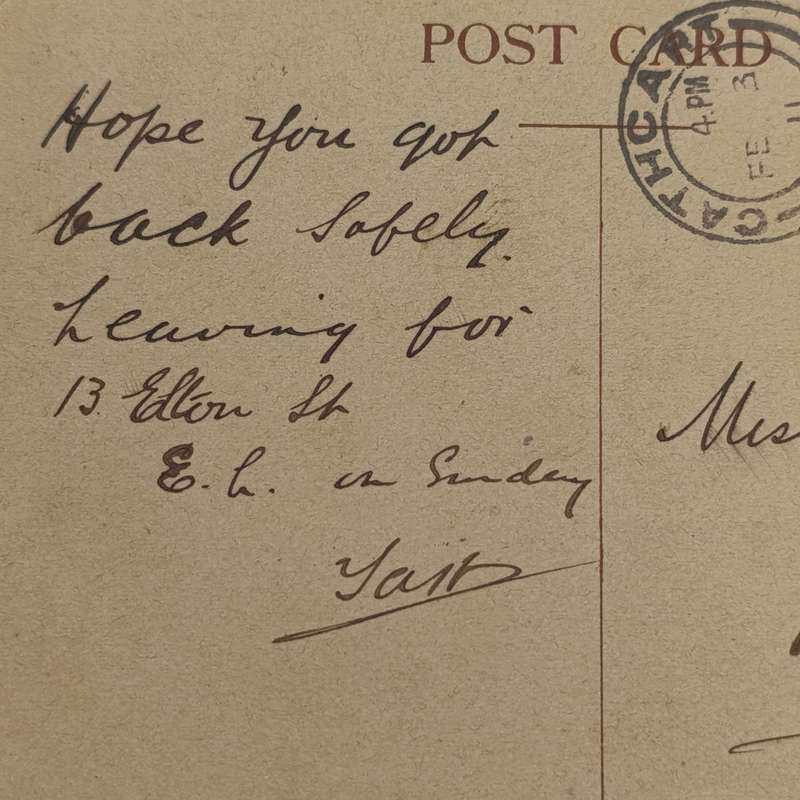 POST CARD
CATHCART
4 PM
FE 3
11
Hope you got
back safely.
Leaving for
13 Elton St
E. L. on Sunday
Miss